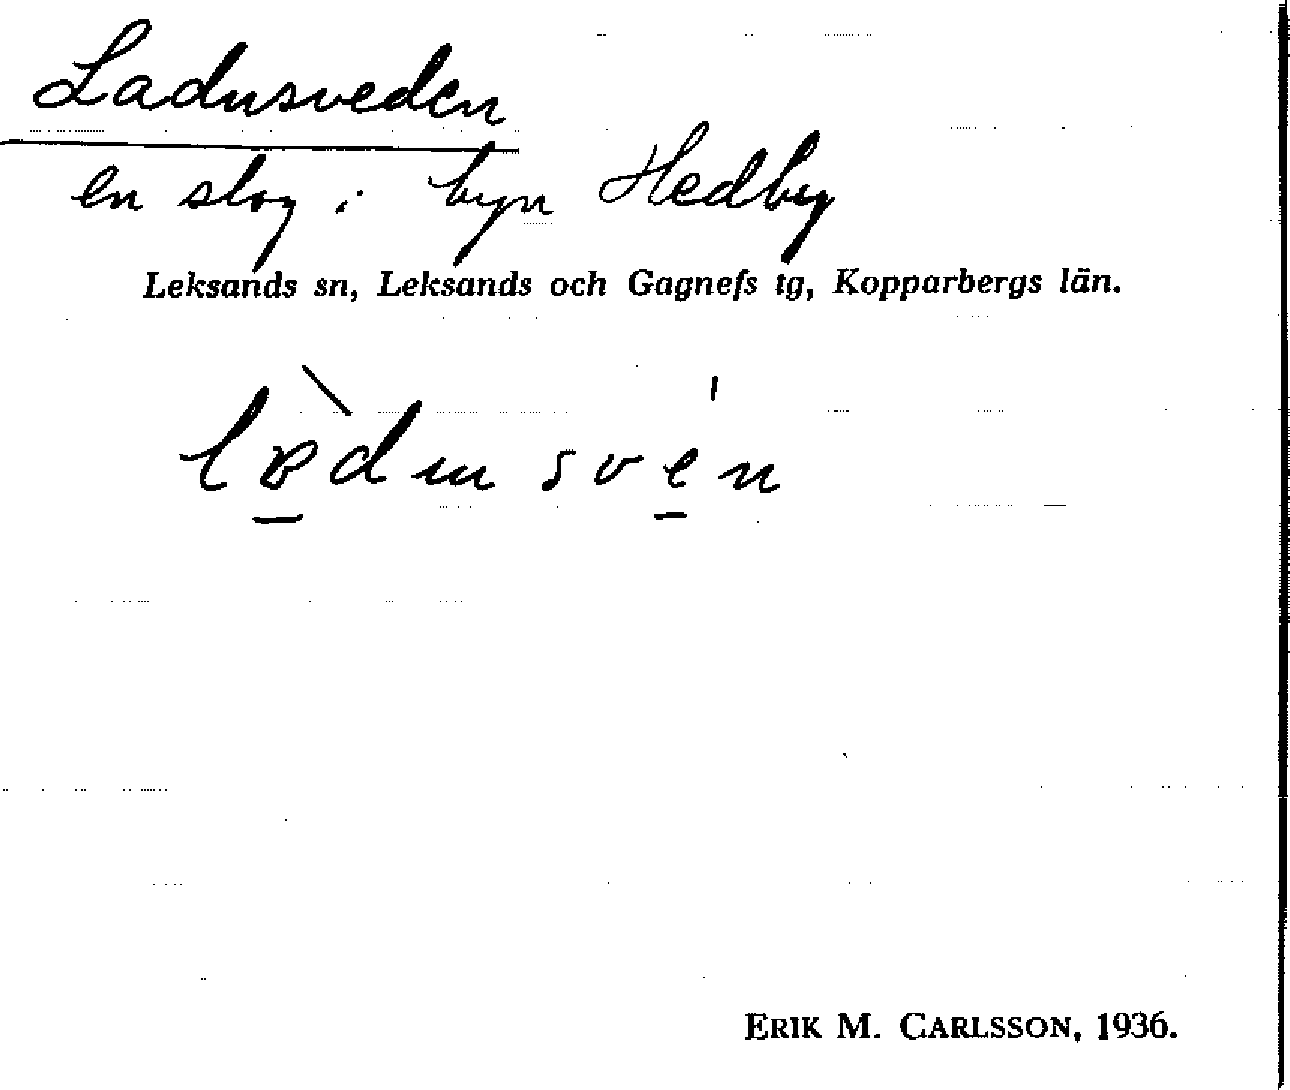 Ladusveden
en slog i byn Hedby
Leksands sn, Leksands och Gagnefs tg, Kopparbergs län.
ERIK M. CARLSSON, 1936.